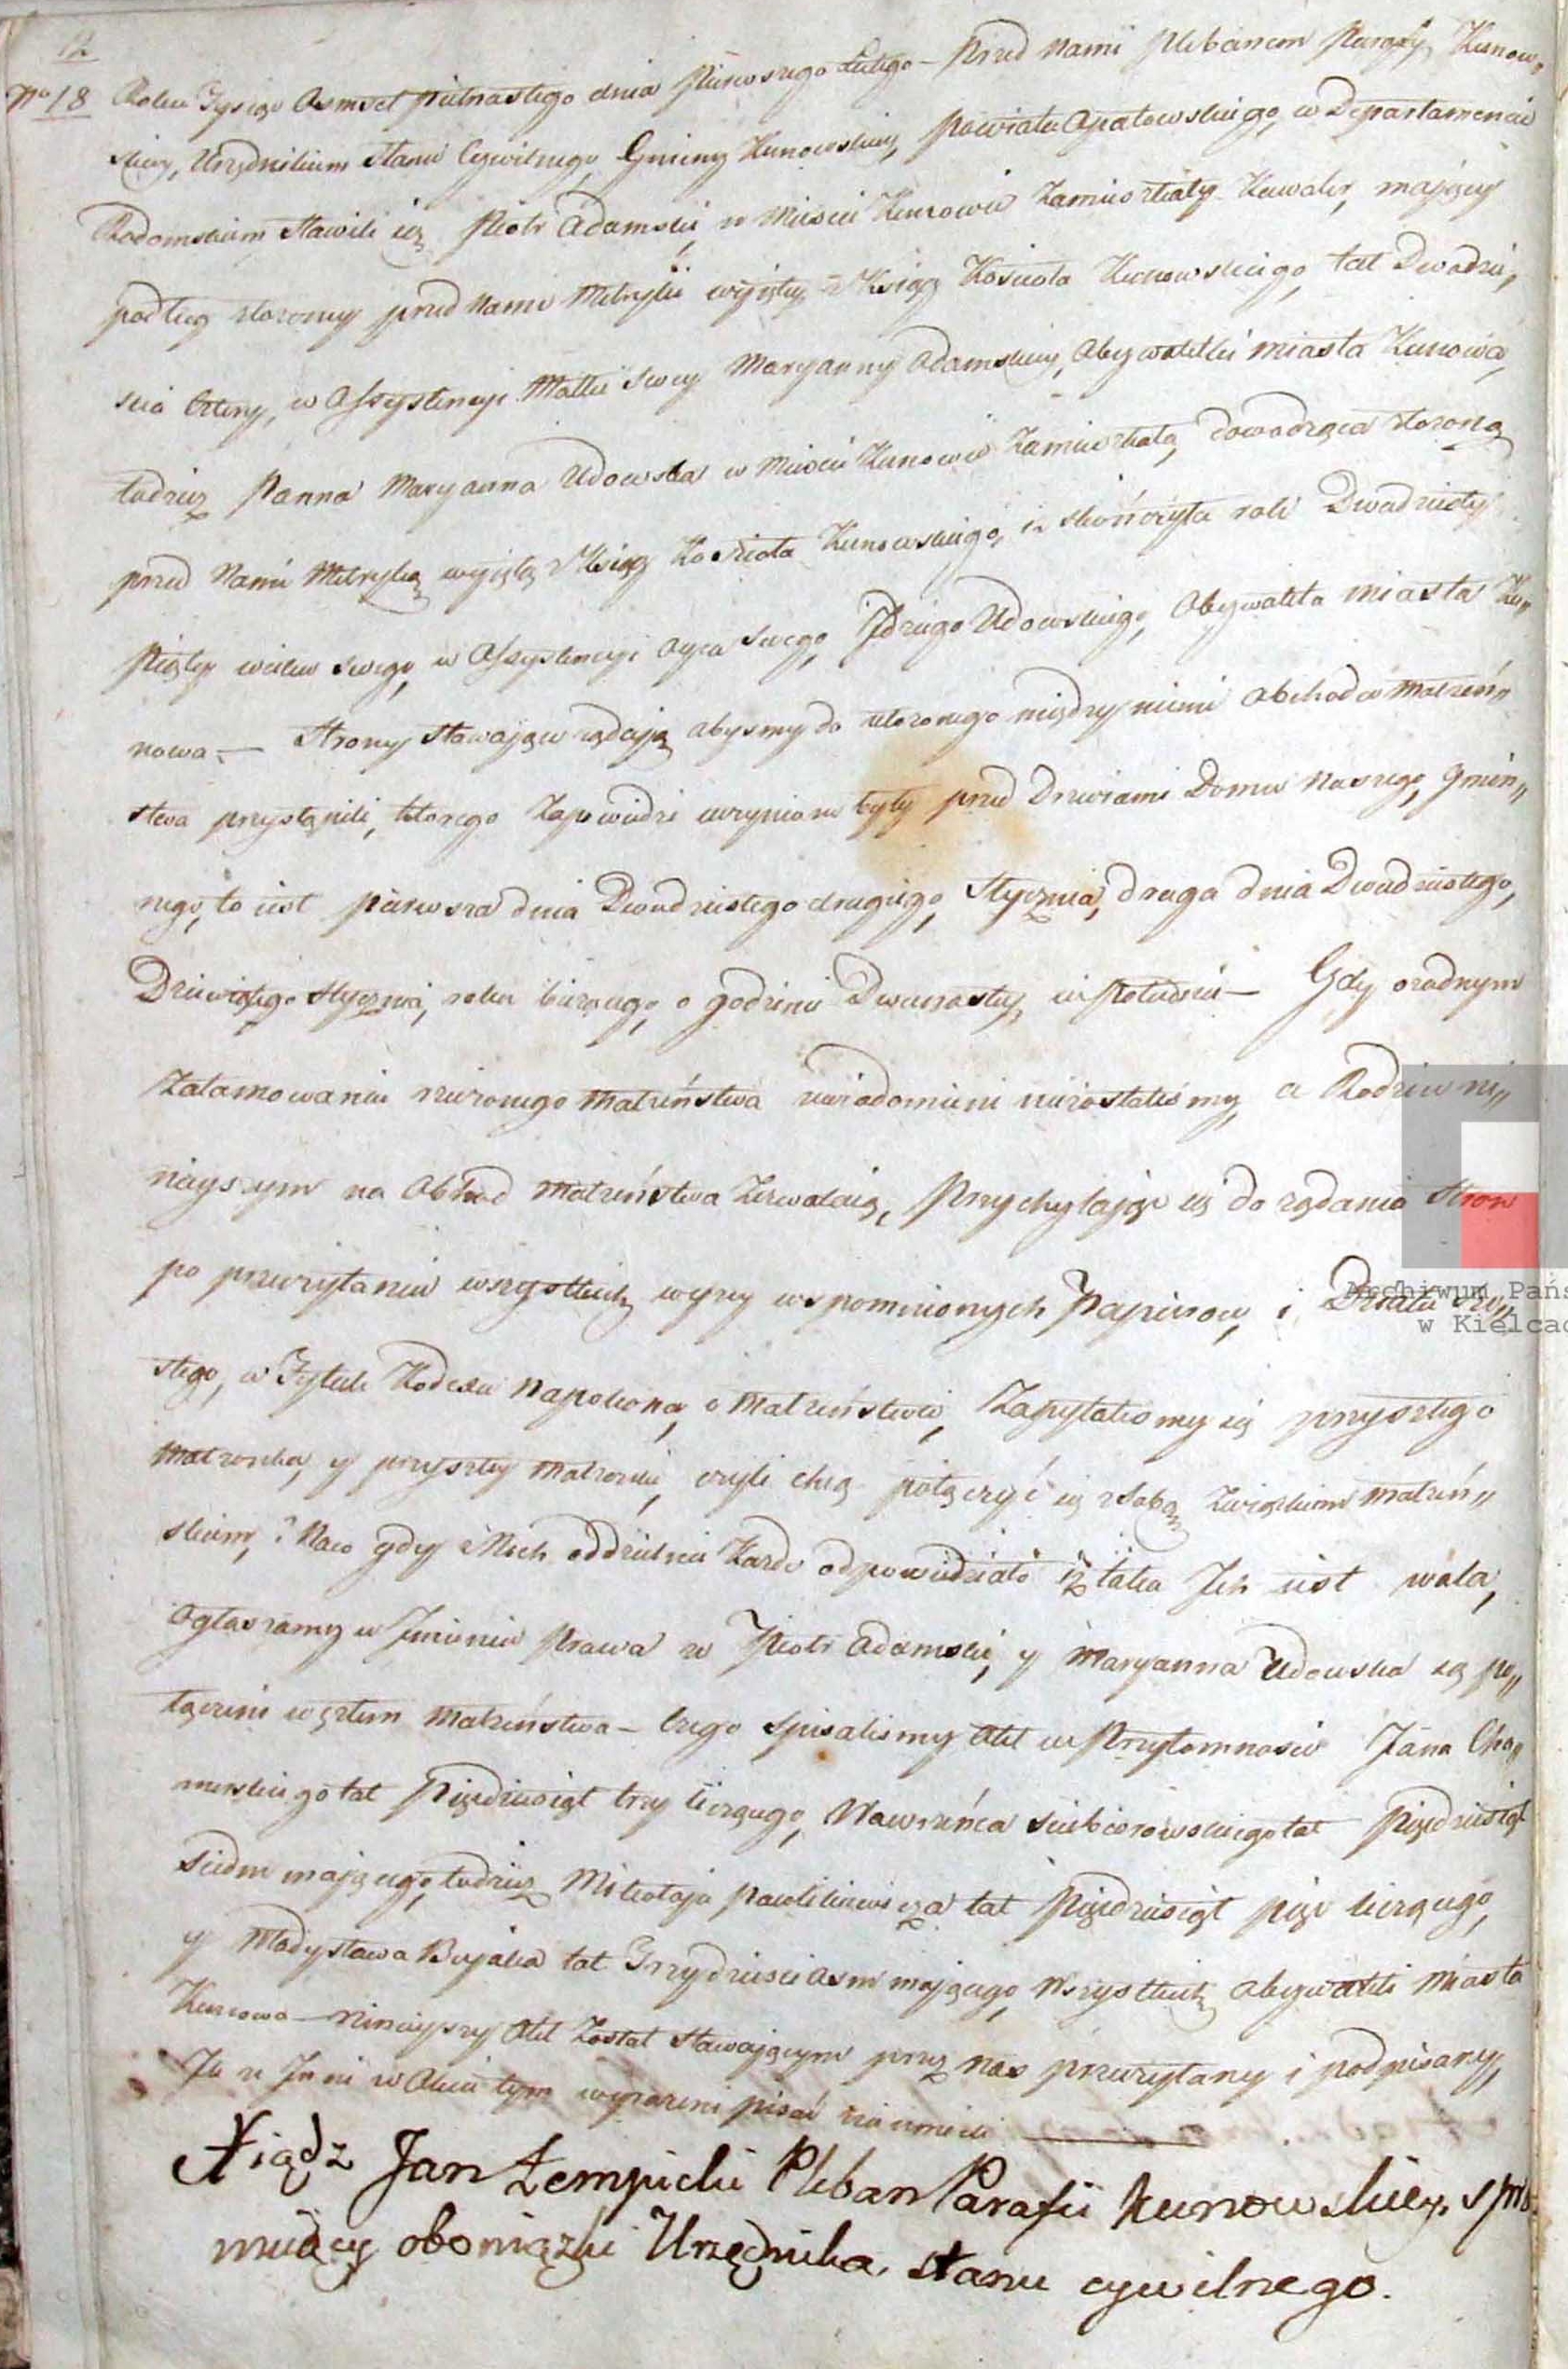 12
No 18 Roku Tysiąc Osmset piętnastego dnia pierwszego Lutego — Przed Nami Plebanem Parafij Kunow„
skiey, Urzędnikiem Stanu Cywilnego, Gminy Kunowskiey, powiatu Opatowskiego, w Departamencie
Radomskim stawili się Piotr Adamski, w Miescie Kunowie Zamieszkały Kawaler, mający
podług złożoney przed Nami Metryki wyjętey z Ksiąg Kościoła Kunowskiego, lat Dwadzie„
scia Cztery, w Assystencyi Matki swey Maryanny Adamskiey, Obywatelki miasta Kunowa,
tudzież Panna Maryanna Udowska w Mieście Kunowie Zamieszkała, dowodząca złożoną
przed Nami Metryką wyjętą z Ksiąg Kościoła Kunowskiego, iż skończyła rok Dwudziesty
Piąty wieku swego, w Assystencyi Oyca swego, Idziego Udowskiego, Obywatela miasta Ku„
nowa. — Strony stawające żądają abysmy do ułożonego między niemi obchodu Małżeń„
stwa przystąpili, ktorego Zapowiedzi uczynione były przed Drzwiami Domu Naszego Gmin„
nego, to iest pierwsza dnia Dwudziestego drugiego, Stycznia, druga dnia Dwudziestego,
Dziewiątego Stycznia, roku bieżącego, o godzinie Dwunastey, w Południe — Gdy o żadnym
Zatamowaniu rzeczonego Małżeństwa uwiadomieni niezostalismy, a Rodzice ni„
nieyszym na Obchod Małżeństwa Zezwalaią, Przychylając się do żądania Stron
po przeczytaniu wszystkich wyżey wspomnionych Papierow, i Działu Szo„
stego, w Tytule Kodexu Napoleona, o Małżeństwie, Zapytalismy się przyszłego
Małżonka, y przyszłey Małżonki, czyli chcą połączyć się z Sobą Związkiem Małżeń„
skiem,? Na co gdy z Nich oddzielnie Każde odpowiedziało iż taka Ich iest wola,
Ogłaszamy w Imieniu Prawa że Piotr Adamski, y Maryanna Udowska są po„
łączeni węzłem Małżeństwa — Czego spisalismy Akt w Przytomności Jana Cho„
mskiego lat Pięćdziesiąt trzy liczącego, Wawrzeńca Sieciorowskiego lat Pięćdziesiąt
siedm mającego, tudzież Mikołaja Pawlikiewicza lat Pięćdziesiąt pięć liczącego,
y Władysława Bujaka lat Trzydzieści ośm mającego, Wszystkich Obywateli Miasta
Kunowa — Ninieyszy Akt Został Stawającym przez nas przeczytany i podpisany,
Ile że Inni w Akcie tym wyrażeni pisać nieumieli
Xiądz Jan Łempicki Pleban Parafii Kunowskiey, spra„
wuiący obowiązki Urzędnika stanu cywilnego.
Archiwum Pańs
w Kielcac